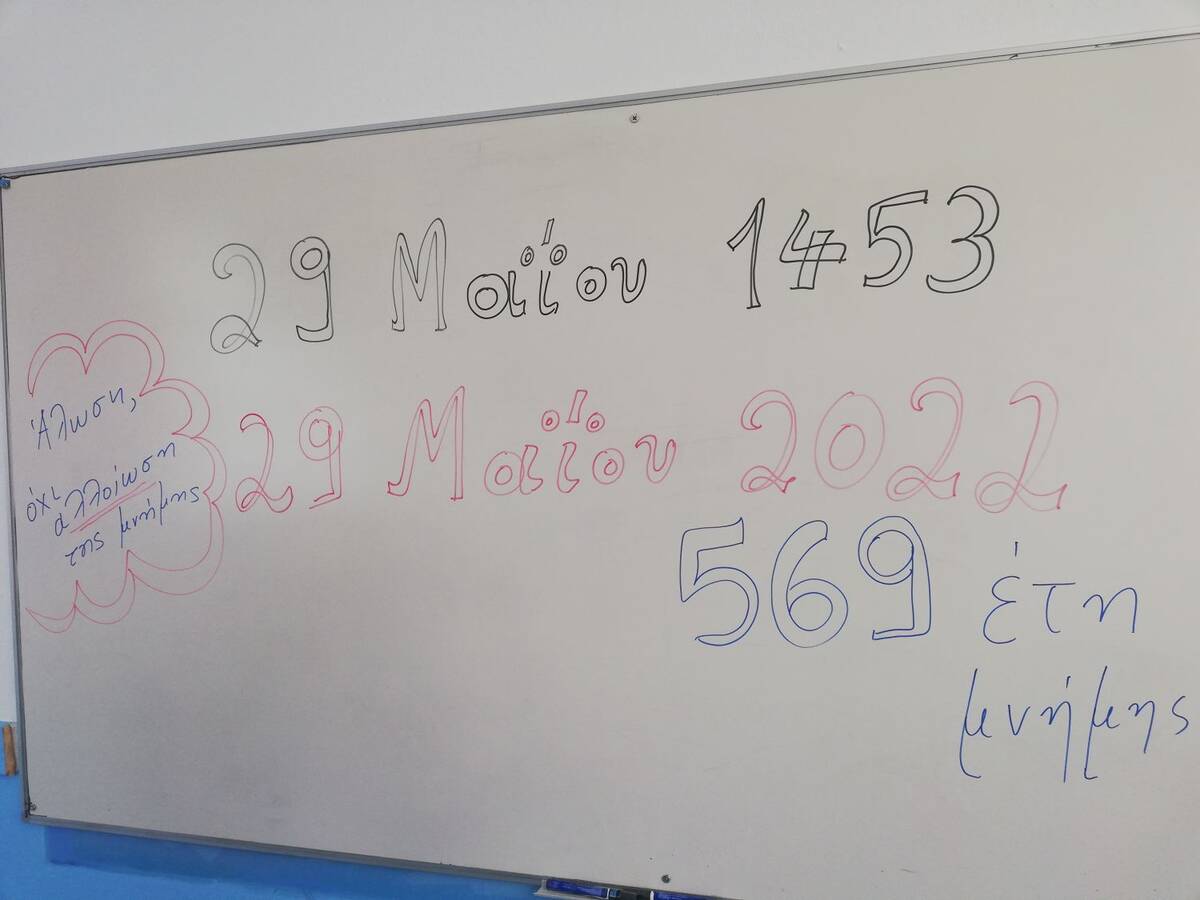 29 Μαΐου 1453
29 Μαΐου 2022
569 έτη
μνήμης
Άλωση,
όχι
αλλοίωση
της μνήμης